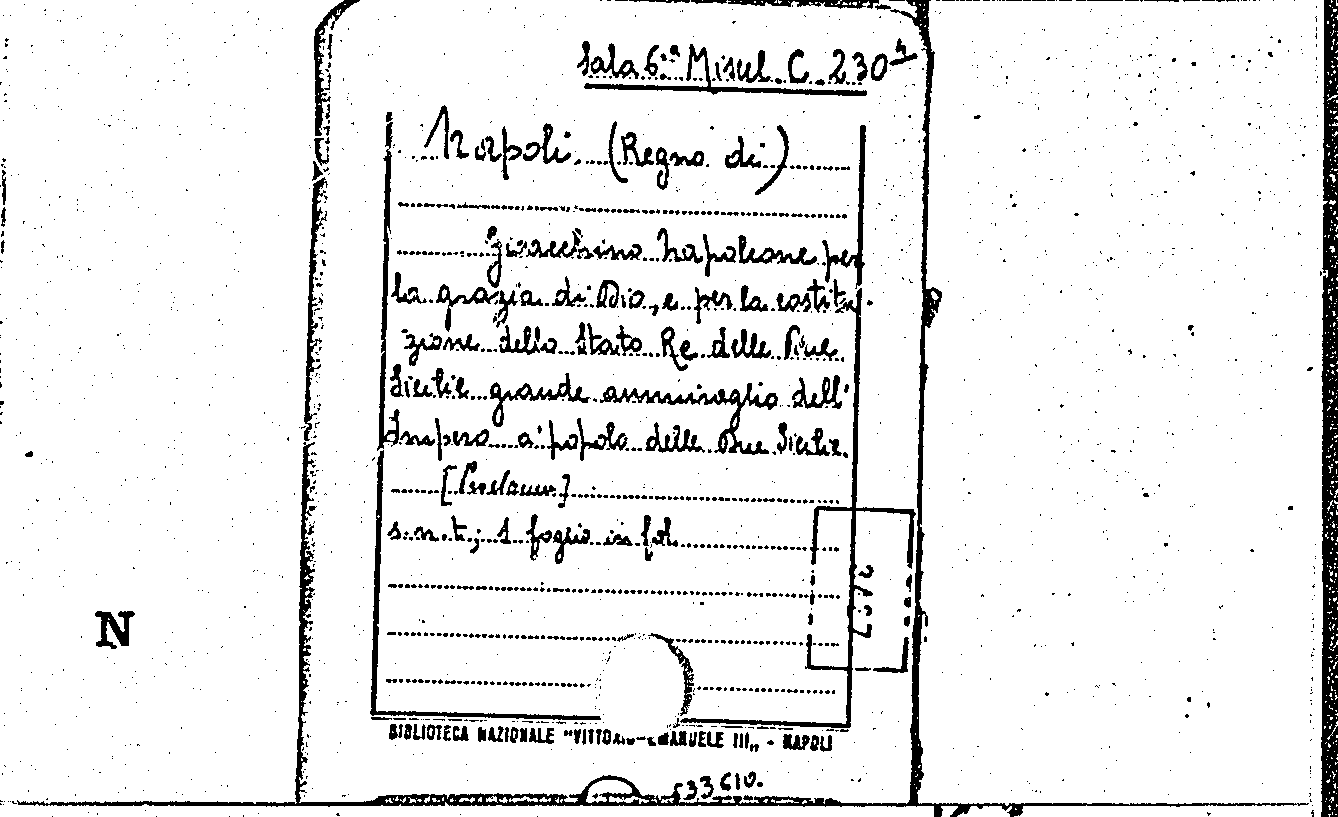 Sala 6.ª Miscel. C. 230⁴
Napoli. (Regno di)
Gioacchino Napoleone per
la grazia di Dio, e per la costitu-
zione dello Stato Re delle Due
Sicilie grande ammiraglio dell'
Impero a' popolo delle Due Sicilie.
[Proclama]
s.n.t; 1 foglio in fol.
N
BIBLIOTECA NAZIONALE "VITTORIO EMANUELE III„ - NAPOLI
533610.